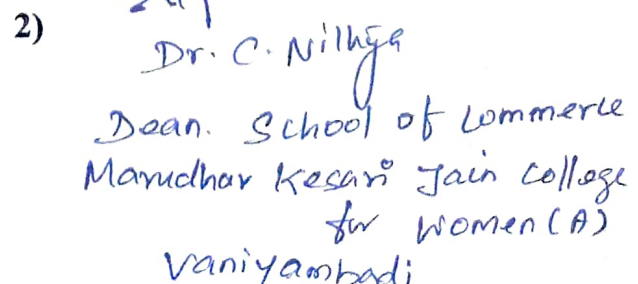 2)
Dr. C. Nithya
Dean. School of Commerce
Marudhar Kesari Jain College
for Women (A)
Vaniyambadi